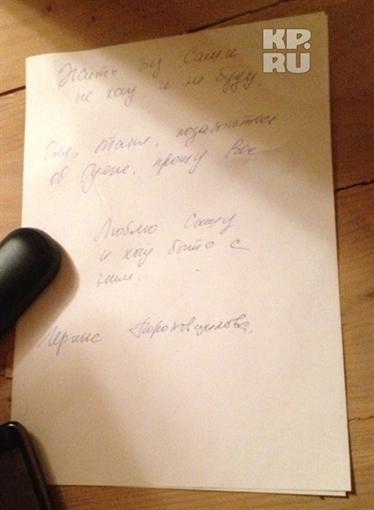 KP.RU
Жить без Саши
не хочу и не буду.
Оля, Таня, позаботьтесь
об Юоне, прошу Вас
Люблю Сашу
и хочу быть с
ним.
Пороховщикова.